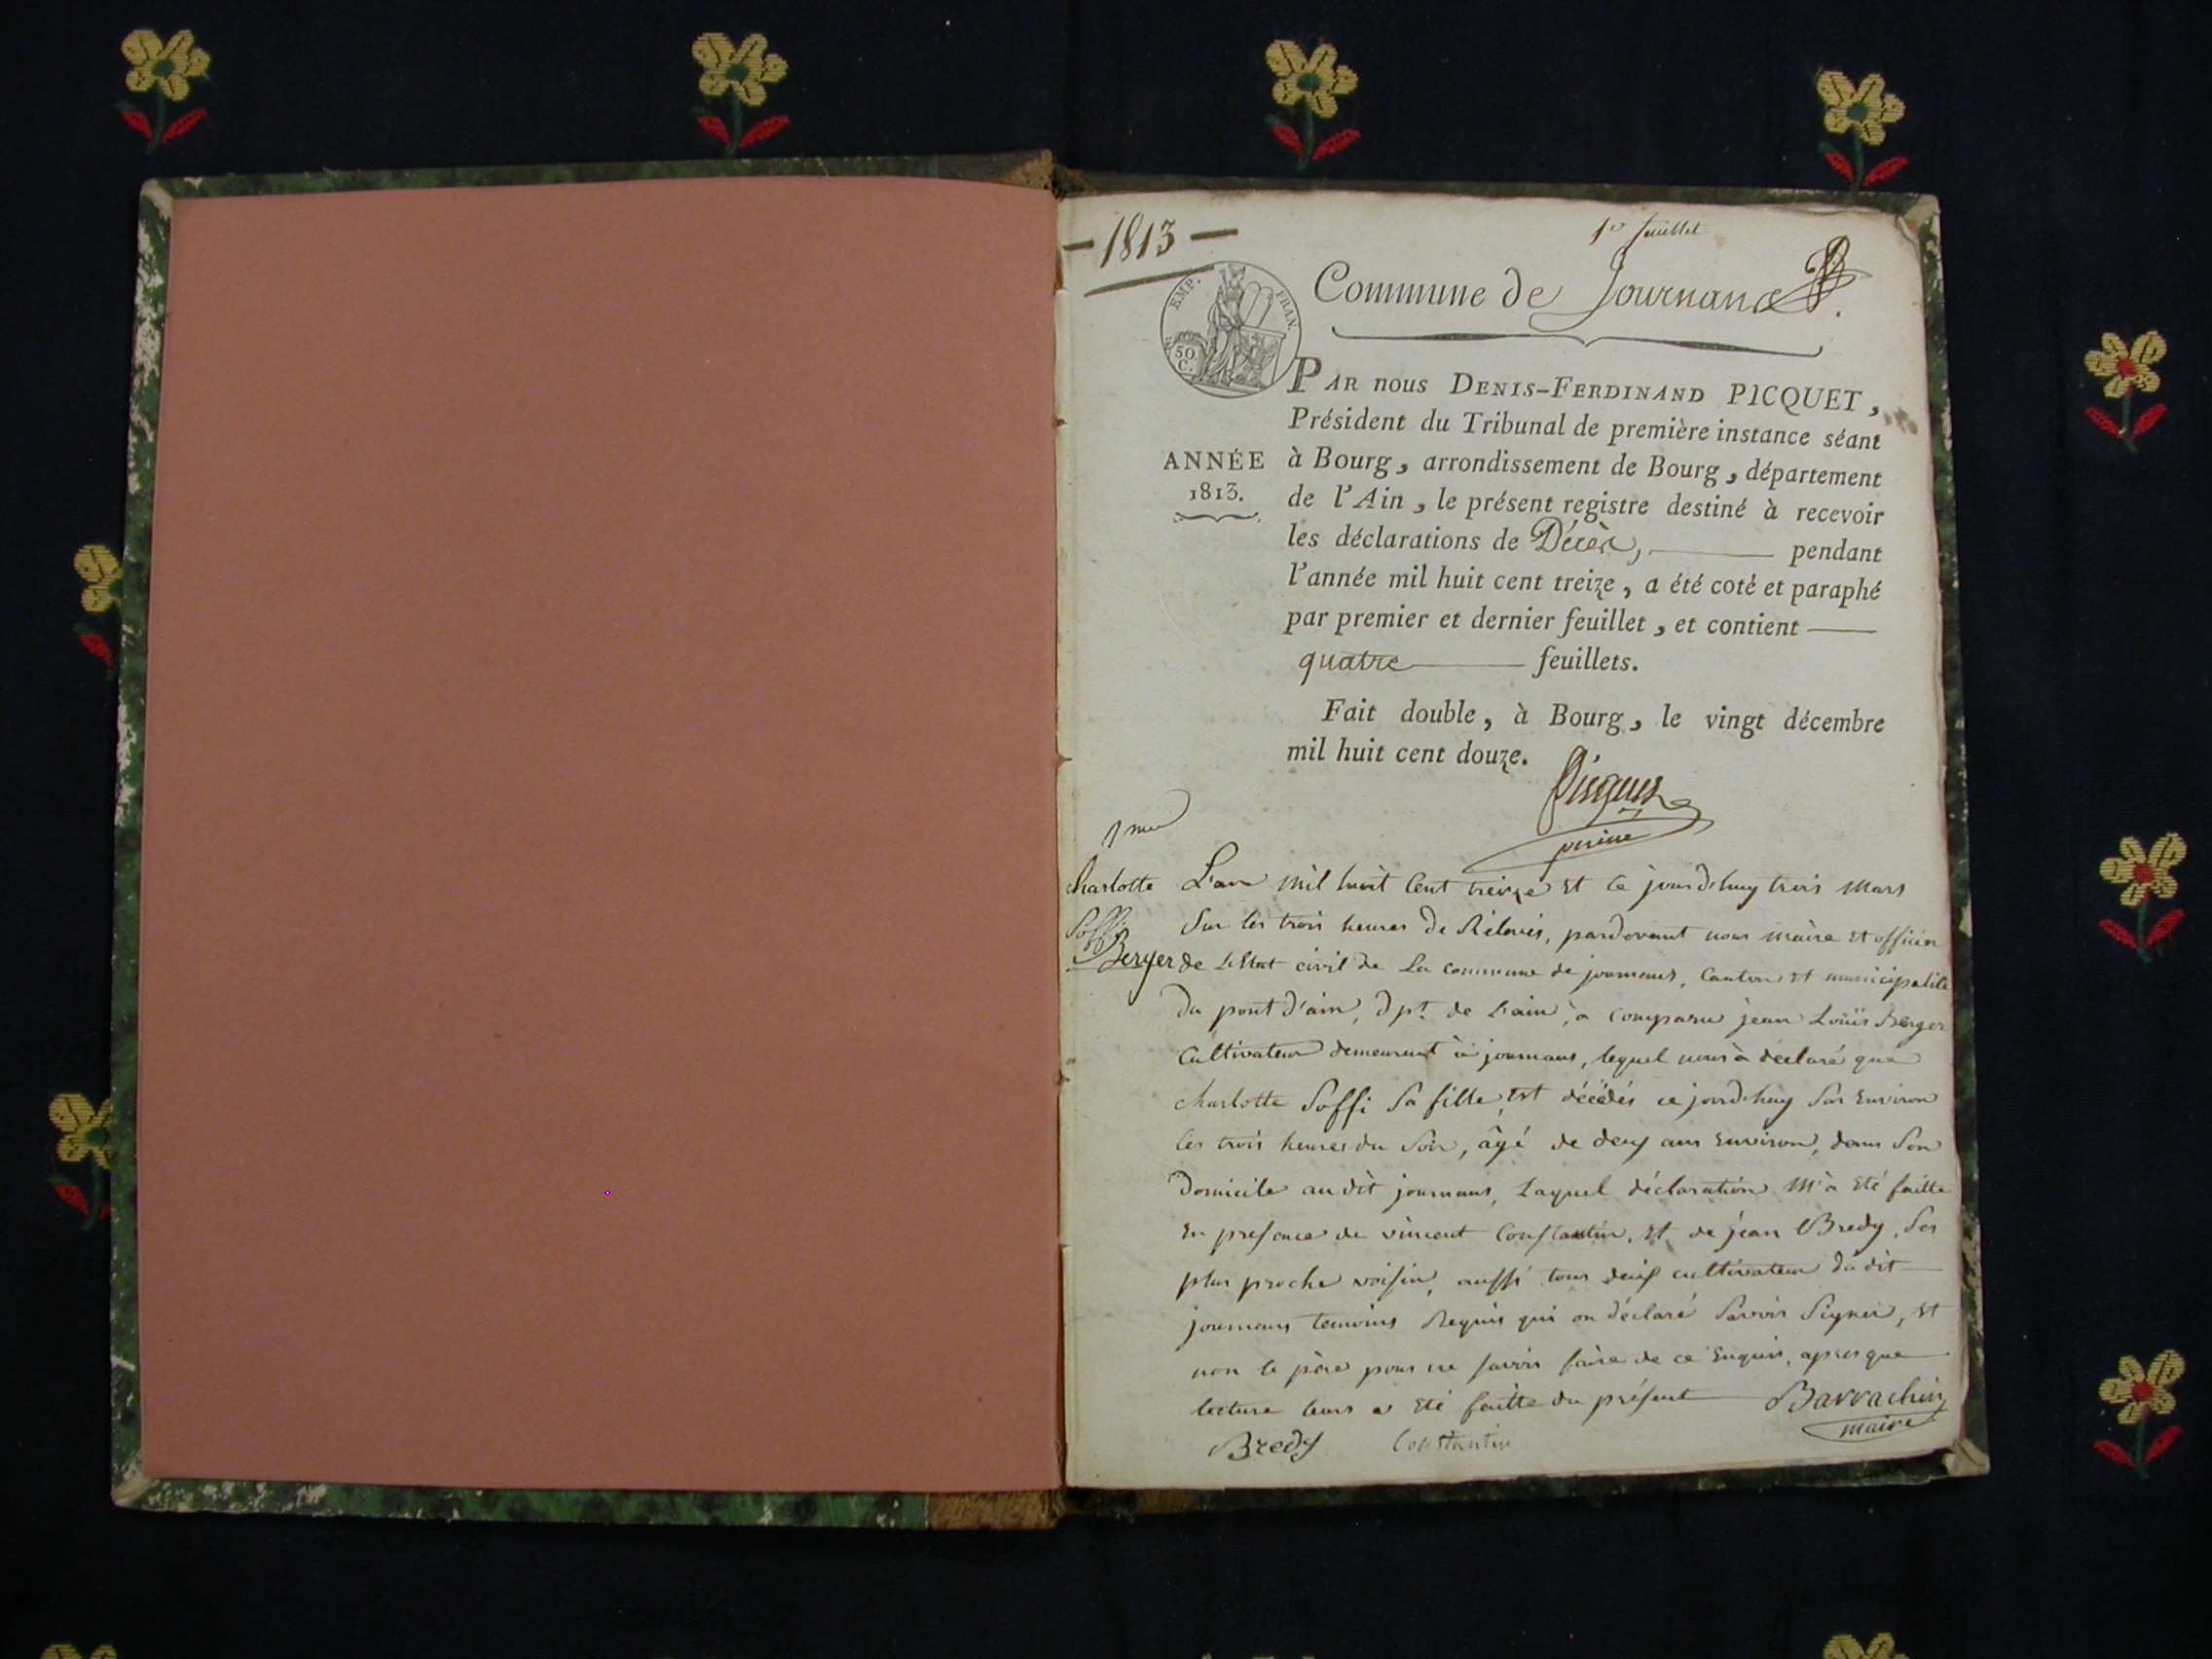 — 1813 —
1er feuillet
Commune de Journans
EMP. FRAN.
50 C.
PAR nous DENIS-FERDINAND PICQUET,
Président du Tribunal de première instance séant
ANNÉE à Bourg, arrondissement de Bourg, département
1813. de l'Ain, le présent registre destiné à recevoir
les déclarations de Décès, pendant
l'année mil huit cent treize, a été coté et paraphé
par premier et dernier feuillet, et contient
quatre feuillets.
Fait double, à Bourg, le vingt décembre
mil huit cent douze.
Picquet
charlotte L'an mil huit Cent treize et ce jourd'huy trois mars
Soffi Sur les trois heures de Rélevés, pardevant nous maire et officier
Berger de L'Etat civil de La commune de journans, Canton et municipalité
Du pont d'ain, Dpt de L'ain, a comparu jean Loüis Berger
Cultivateur demeurant à journans, lequel nous à déclaré que
charlotte Soffi Sa fille, est décédés ce jourd'huy Sur Environ
les trois heures du Soir, âgé de deux ans Environ, dans Son
Domicile au dit journans, Laquel déclaration M'à Eté faitte
En presence de vincent Constantin, et de jean Bredy, Ses
plus proche voisin, aussi tous deux cultivateur du dit
journans temoins Requis qui on déclaré Savoir Signer, et
non le père pour ne savoir faire de ce Enquis, apres que
lecture leurs a Eté faitte du présent Barrachin
maire
Bredy Constantin